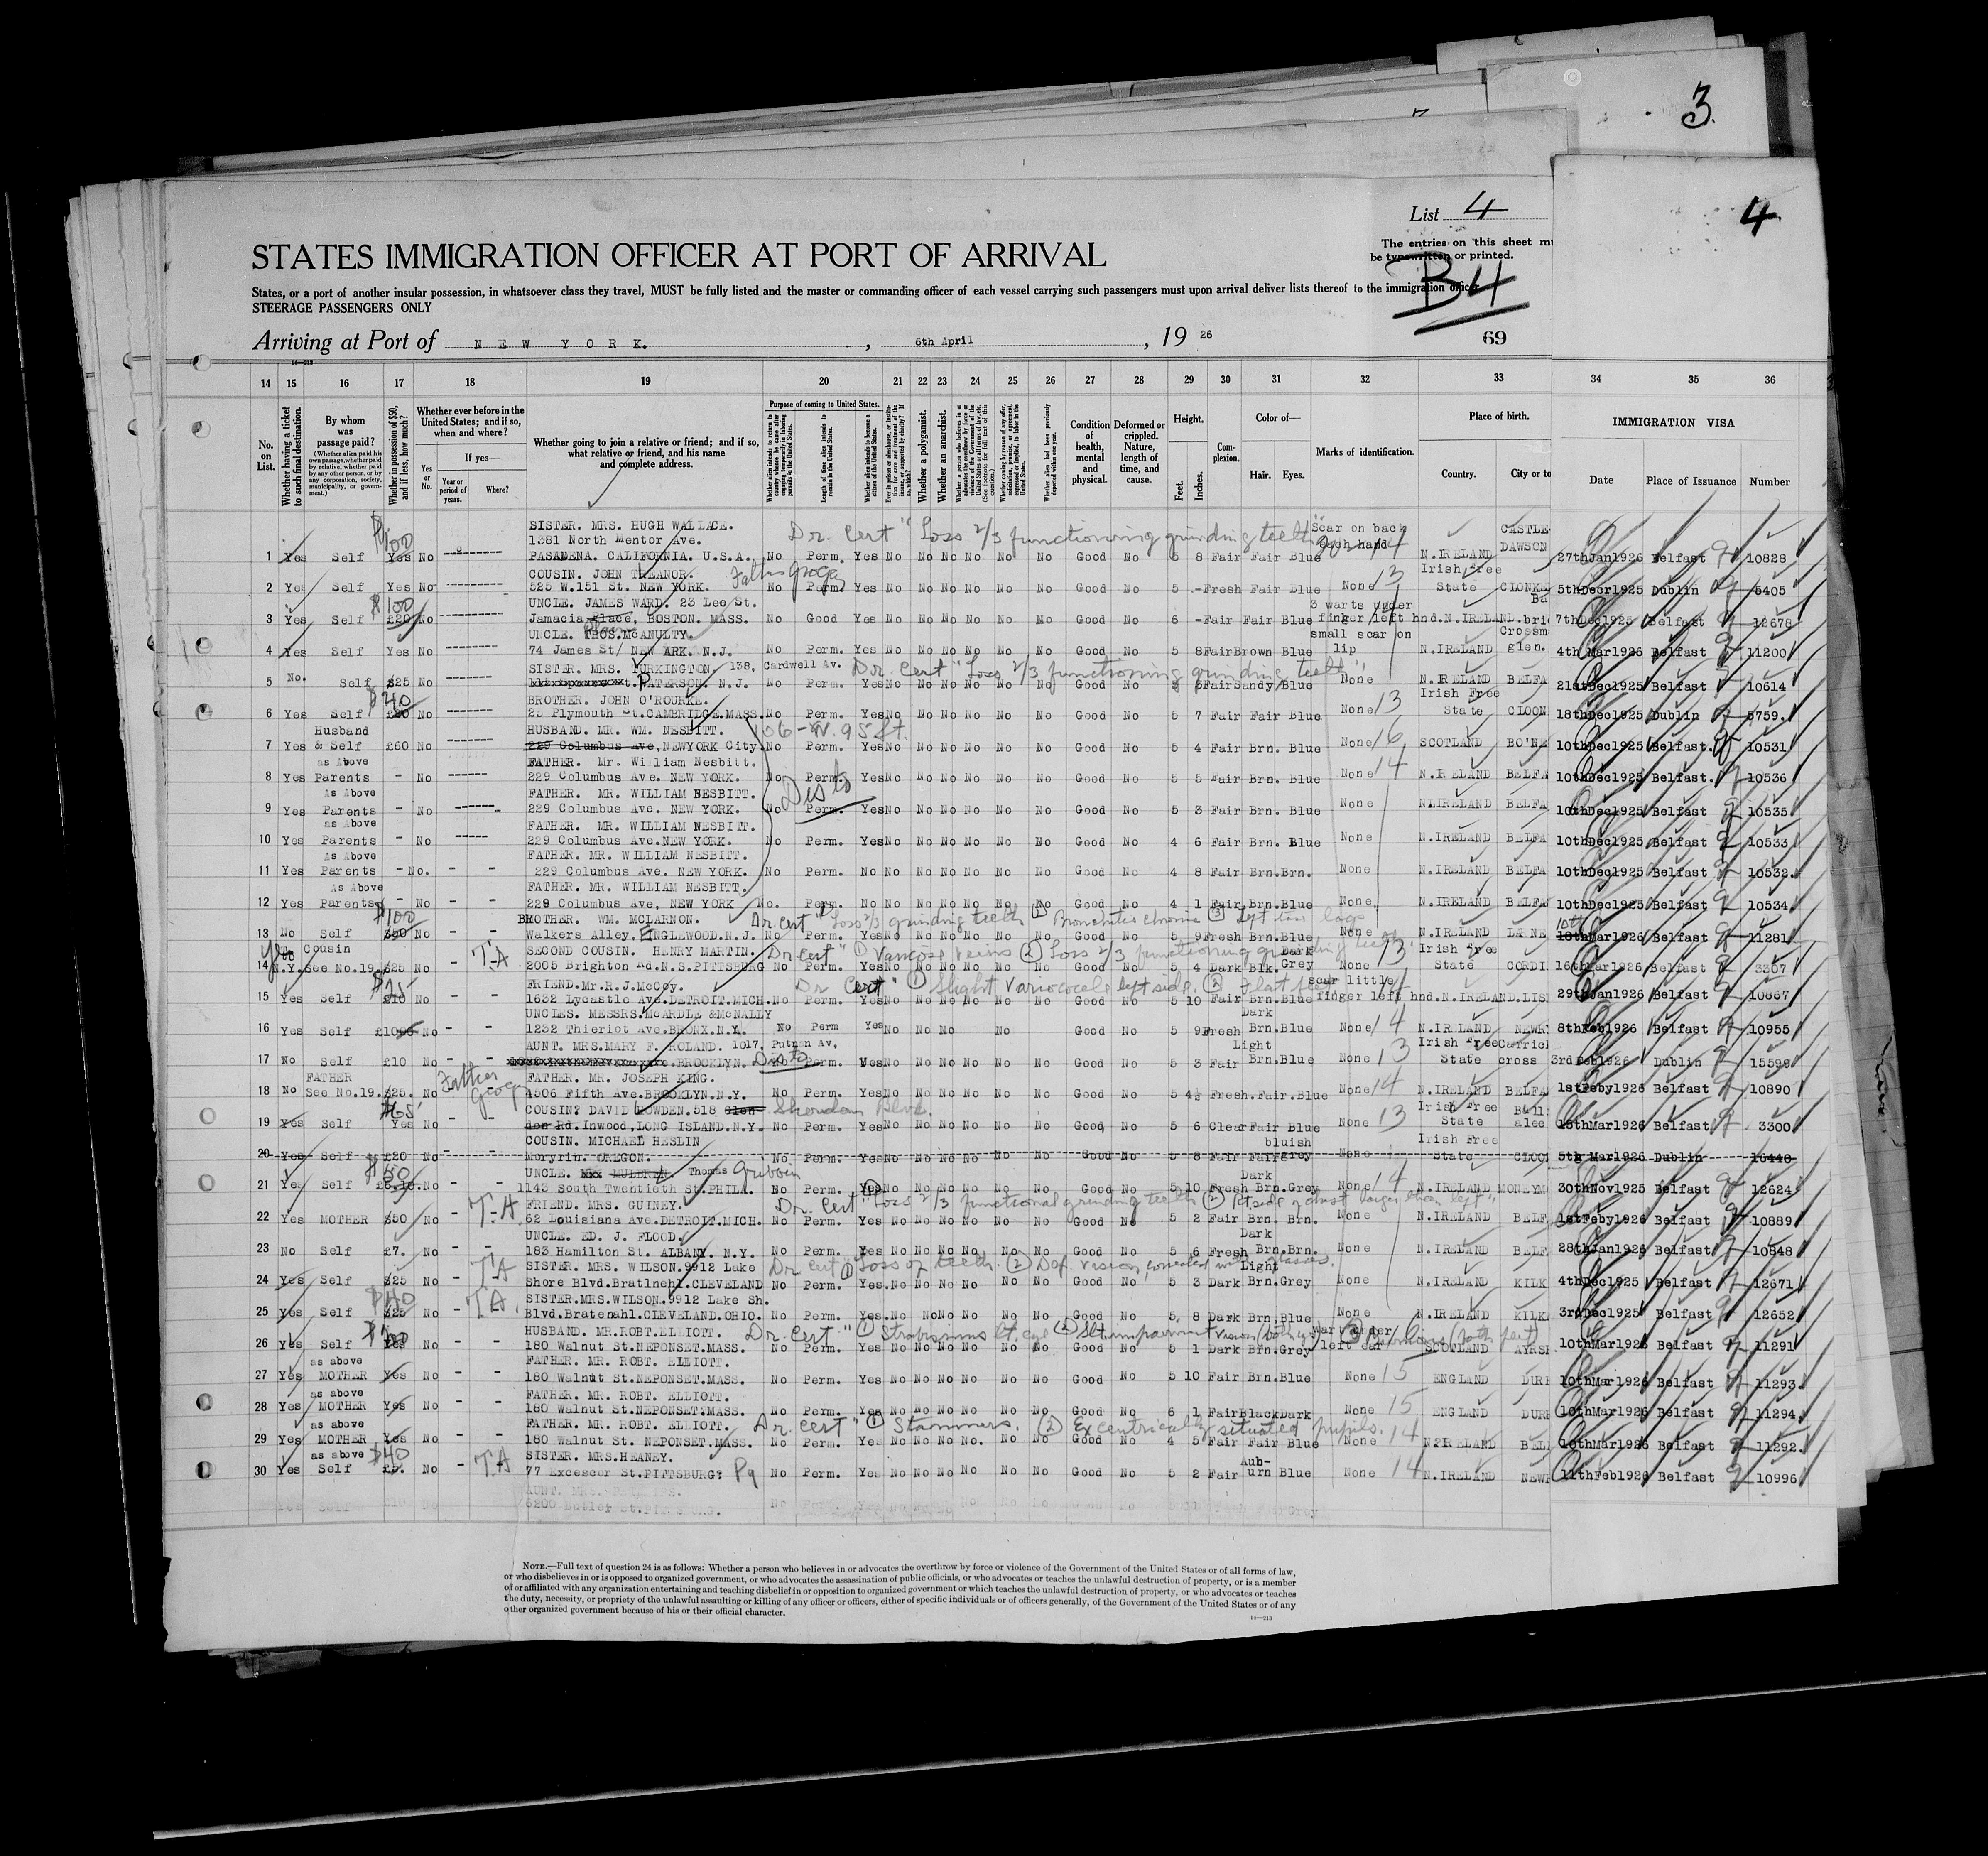 3
4
List 4
STATES IMMIGRATION OFFICER AT PORT OF ARRIVAL
The entries on this sheet mu
be typewritten or printed.
B4
States, or a port of another insular possession, in whatsoever class they travel, MUST be fully listed and the master or commanding officer of each vessel carrying such passengers must upon arrival deliver lists thereof to the immigration officer
STEERAGE PASSENGERS ONLY
Arriving at Port of NEW YORK. , 6th April , 19 26
69
14 15 16 17 18 19 20 21 22 23 24 25 26 27 28 29 30 31 32 33 34 35 36
No. on List.
Whether having a ticket to such final destination.
By whom was passage paid?
(Whether alien paid his own passage, whether paid by relative, whether paid by any other person, or by any corporation, society, municipality, or government.)
Whether in possession of $50, and if less, how much?
Whether ever before in the United States; and if so, when and where?
Yes or No.
If yes—
Year or period of years.
Where?
Whether going to join a relative or friend; and if so, what relative or friend, and his name and complete address.
Purpose of coming to United States.
Length of time alien intends to remain in the United States.
Whether a polygamist.
Whether an anarchist.
Condition of health, mental and physical.
Deformed or crippled. Nature, length of time, and cause.
Height.
Feet.
Inches.
Complexion.
Color of—
Hair. Eyes.
Marks of identification.
Place of birth.
Country.
City or to
IMMIGRATION VISA
Date Place of Issuance Number
SISTER. MRS. HUGH WALLACE.
Dr. Cert "Loss 2/3 functioning grinding teeth"
Scar on back
CASTLE-
$100
1381 North Mentor Ave.
DAWSON
1 Yes Self Yes No PASADENA. CALIFORNIA. U.S.A. No Perm. Yes No No No No No No Good No 5 8 Fair Fair Blue N.IRELAND 27thJan1926 Belfast 10828
COUSIN. JOHN TREANOR.
Irish Free
2 Yes Self Yes No 525 W.151 St. NEW YORK. No Perm. Yes No No No No No No Good No 5 - Fresh Fair Blue None 13 State 5thDecr1925 Dublin
$100
UNCLE. JAMES WARD. 23 Lee St.
3 warts under
3 Yes Self £20 No Jamacia Place, BOSTON. MASS. No Good Yes No No No No No No Good No 6 - Fair Fair Blue finger left hnd. N.IRELAND. 7thDec1925 Belfast 12678
UNCLE. THOS.McANULTY.
small scar on
Crossm
4 Yes Self Yes No 74 James St/ NEW ARK. N.J. No Perm. Yes No No No No No No Good No 5 8 Fair Brown Blue lip N.IRELAND glen. 4th Mar1926 Belfast 11200
SISTER. MRS. TURKINGTON. 138, Cardwell Av.
Dr. Cert "Loss 2/3 functioning grinding teeth"
5 No. Self £25 No PATERSON. N.J. No Perm. Yes No No No No No No Good No Fair Sandy Blue None N.IRELAND BELFA 21stDec1925 Belfast 10614
$40
BROTHER. JOHN O'ROURKE.
Irish Free
6 Yes Self No 25 Plymouth St.CAMBRIDGE.MASS. No Perm. Yes No No No No No No Good No 5 7 Fair Fair Blue None 13 State CLOON 18thDec1925 Dublin
Husband
HUSBAND. MR. WM. NESBITT.
106-W. 95 St.
7 Yes & Self £60 No 229 Columbus Ave, NEWYORK City. No Perm. Yes No No No No No No Good No 5 4 Fair Brn. Blue None 16 SCOTLAND BO'NE 10thDec1925 Belfast. 10531
as Above
FATHER. Mr. William Nesbitt.
8 Yes Parents - No 229 Columbus Ave. NEW YORK. No Perm. Yes No No No No No No Good No 5 5 Fair Brn. Blue None 14 N.IRELAND BELFA 10thDec1925 Belfast. 10536
Disto
As Above
FATHER. MR. WILLIAM NESBITT.
9 Yes Parents - No 229 Columbus Ave. NEW YORK. No Perm. Yes No No No No No No Good No 5 3 Fair Brn. Blue None N.IRELAND BELFA 10thDec1925 Belfast 10535
as Above
FATHER. MR. WILLIAM NESBITT.
10 Yes Parents - No 229 Columbus Ave.NEW YORK. No Perm. Yes No No No No No No Good No 4 6 Fair Brn. Blue None N.IRELAND BELFA 10thDec1925 Belfast 10533
As Above
FATHER. MR. WILLIAM NESBITT.
11 Yes Parents - No. - - 229 Columbus Ave. NEW YORK. No Perm. No No No No No No No Good No 4 8 Fair Brn.Brn. None N.IRELAND BELFA 10thDec1925 Belfast 10532
As Above
FATHER. MR. WILLIAM NESBITT.
12 Yes Parents - No - - 229 Columbus Ave, NEW YORK No. Perm. No No No No No No No Good No 4 1 Fair Brn.Blue None. N.IRELAND BELFA 10thDec1925 Belfast 10534
$100
BROTHER. WM. MCLARNON.
Dr. Cert "Loss 2/3 grinding teeth (2) Bronchitis chronic (3)
13 No Self No - - Walkers Alley. ENGLEWOOD.N.J. No Perm. Yes No No No No No No Good No 5 9 Fresh Brn.Blue None N.IRELAND 18thMar1926 Belfast 11281
Cousin
T.A
SECOND COUSIN. HENRY MARTIN.
Dr Cert "(1) Varicose veins (2) Loss 2/3 functioning grinding teeth
Dark
Irish Free
14 N.Y. See No.19. £25 No 2005 Brighton Rd.N.S.PITTSBURG No Perm. Yes No No No No No No Good No 5 4 Dark Blk. Grey None 13 State CORDI 16thMar1926 Belfast 3307
FRIEND.Mr.R.J.McCoy.
Dr Cert "(1) Slight Varicocele left side. (2) Flat feet
scar little
15 Yes Self £10 No - - 1632 Lycastle Ave.DETROIT.MICH. No Perm. Yes No No No No No No Good No 5 10 Fair Brn.Blue finger left hnd. N.IRELAND.LIS 29thJan1926 Belfast 10867
UNCLES. MESSRS.McARDLE &McNALLY
Dark
16 Yes Self No - - 1232 Thieriot Ave.BRONX.N.Y. No Perm Yes No No No No Good No 5 9 Fresh Brn.Blue None 14 N.IRELAND NEWR 8thFeb1926 Belfast 10955
AUNT. MRS.MARY F. ROLAND. 1017, Putnan Av,
Light
Irish Free Carrick
17 No Self £10 No - - BROOKLYN. Disto Perm. Yes No No No No No No Good No 5 3 Fair Brn.Blue None 13 State cross 3rd Feb1926 Dublin 15599
FATHER
Father Grogan
FATHER. MR. JOSEPH KING.
18 No See No.19. £25. No 4506 Fifth Ave.BROOKLYN.N.Y. No Perm. Yes No No No No No No Good No 5 4½ Fresh.Fair.Blue None 14 N.IRELAND BELFA 1stFeby1926 Belfast 10890
$65
COUSIN? DAVID BOWDEN.518 Glen- Sheridan Blvd.
Irish Free
19 Yes Self Yes No - - Rd.Inwood,LONG ISLAND.N.Y. No Perm. Yes No No No No No No Good No 5 6 Clear Fair Blue None 13 State 16thMar1926 Belfast 3300
COUSIN. MICHAEL HESLIN
bluish
Irish Free
20 Yes Self £20 No Moryrin. OREGON. No Perm. Yes No No No No No No Good No 5 8 Fair Fair grey None State CLOON 5th Mar1926 Dublin 16448
$50
UNCLE. Thomas Gribben
Dark
21 Yes Self No - - 1143 South Twentieth St.PHILA. No Perm. Yes No No No No No No Good No 5 10 Fresh Brn.Grey None 14 N.IRELAND MONEYM 30thNov1925 Belfast 12624
T.A
FRIEND. MRS. GUINEY.
Dr. Cert "Loss 2/3 functional grinding teeth (2) Rt side of chest larger than left"
22 Yes MOTHER $50 No 62 Louisiana Ave.DETROIT.MICH. No Perm. Yes No No No No No No Good No 5 2 Fair Brn. Brn. None N.IRELAND BELF 1stFeby1926 Belfast 10889
UNCLE. ED. J. FLOOD.
Dark
23 No Self £7. No - - 183 Hamilton St. ALBANY. N.Y. No Perm. Yes No No No No No No Good No 5 6 Fresh Brn.Brn. None N.IRELAND BELF 28thJan1926 Belfast 10848
T.A
SISTER. MRS. WILSON.9912 Lake
Dr Cert (1) Loss of teeth. (2) Def. vision, corrected with glasses.
Light
24 Yes Self $25 No Shore Blvd.Bratlnehl.CLEVELAND No Perm. Yes.No No No No No No Good No 5 3 Dark Brn.Grey None N.IRELAND KILK 4thDec1925 Belfast 12671
$40
T.A.
SISTER.MRS.WILSON.9912 Lake Sh.
25 Yes Self £25 No Blvd.Bratenahl.CLEVELAND.OHIO. No Perm. Yes.No No No No No No Good No 5 8 Dark Brn.Blue None N.IRELAND KILK 3rdDec1925 Belfast 12652
HUSBAND. MR.ROBT.ELLIOTT.
Dr. Cert "(1) Strabismus lt. eye (2) Slt impairment vision
26 Yes Self Yes No - - 180 Walnut St.NEPONSET.MASS. No Perm. Yes No No No No No No Good No 5 1 Dark Brn.Grey left ear SCOTLAND AYRSH 10thMar1926 Belfast 11291
as above
FATHER. MR. ROBT. ELLIOTT.
27 Yes MOTHER Yes No - - 180 Walnut St.NEPONSET.MASS. No Perm. Yes No No No No No No Good No 5 10 Fair Brn.Blue None 15 ENGLAND DURH 10thMar1926 Belfast 11293
as above
FATHER. MR. ROBT. ELLIOTT.
28 Yes MOTHER Yes No - - 180 Walnut St.NEPONSET.MASS. No Perm. Yes No No No No No No Good No 6 1 Fair Black Dark None 15 ENGLAND DURH 10thMar1926 Belfast 11294
as above
FATHER. MR. ROBT. ELLIOTT.
Dr. Cert "(1) Stammers. (2) Excentrically situated pupils.
29 Yes MOTHER Yes No - - 180 Walnut St. NEPONSET.MASS. No Perm. Yes No No No No. No No Good No 4 5 Fair Fair Blue None 14 N.IRELAND BEL 10thMar1926 Belfast 11292
as above
$40
T.A
SISTER. MRS.HEANEY.
Aub-
30 Yes Self £5. No 77 Excescor St.PITTSBURG? Pa No Perm. Yes No No No No No No Good No 5 2 Fair urn Blue None 14 N.IRELAND NEWR 11thFeb1926 Belfast 10996
NOTE.—Full text of question 24 is as follows: Whether a person who believes in or advocates the overthrow by force or violence of the Government of the United States or of all forms of law,
or who disbelieves in or is opposed to organized government, or who advocates the assassination of public officials, or who advocates or teaches the unlawful destruction of property, or is a member
of or affiliated with any organization entertaining and teaching disbelief in or opposition to organized government or which teaches the unlawful destruction of property, or who advocates or teaches
the duty, necessity, or propriety of the unlawful assaulting or killing of any officer or officers, either of specific individuals or of officers generally, of the Government of the United States or of any
other organized government because of his or their official character.
14—213